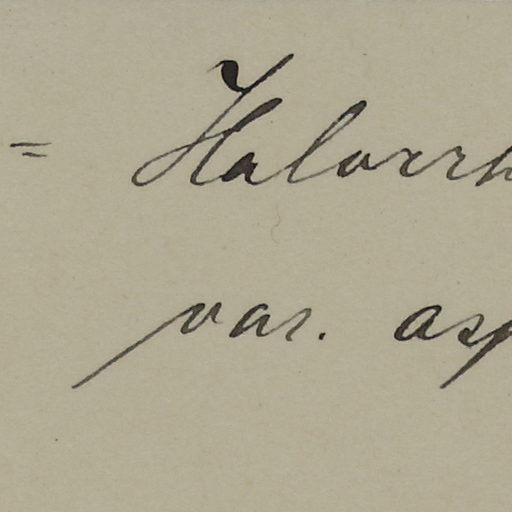 = Halorrh
var. asp